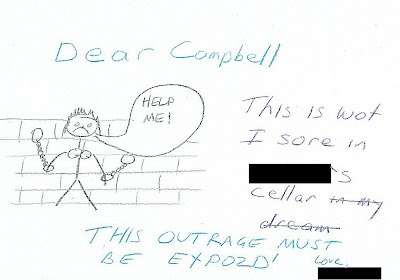 Dear Campbell
HELP
ME!
This is wot
I sore in
's
cellar in my
dream
THIS OUTRAGE MUST
BE EXPOZD! Love,